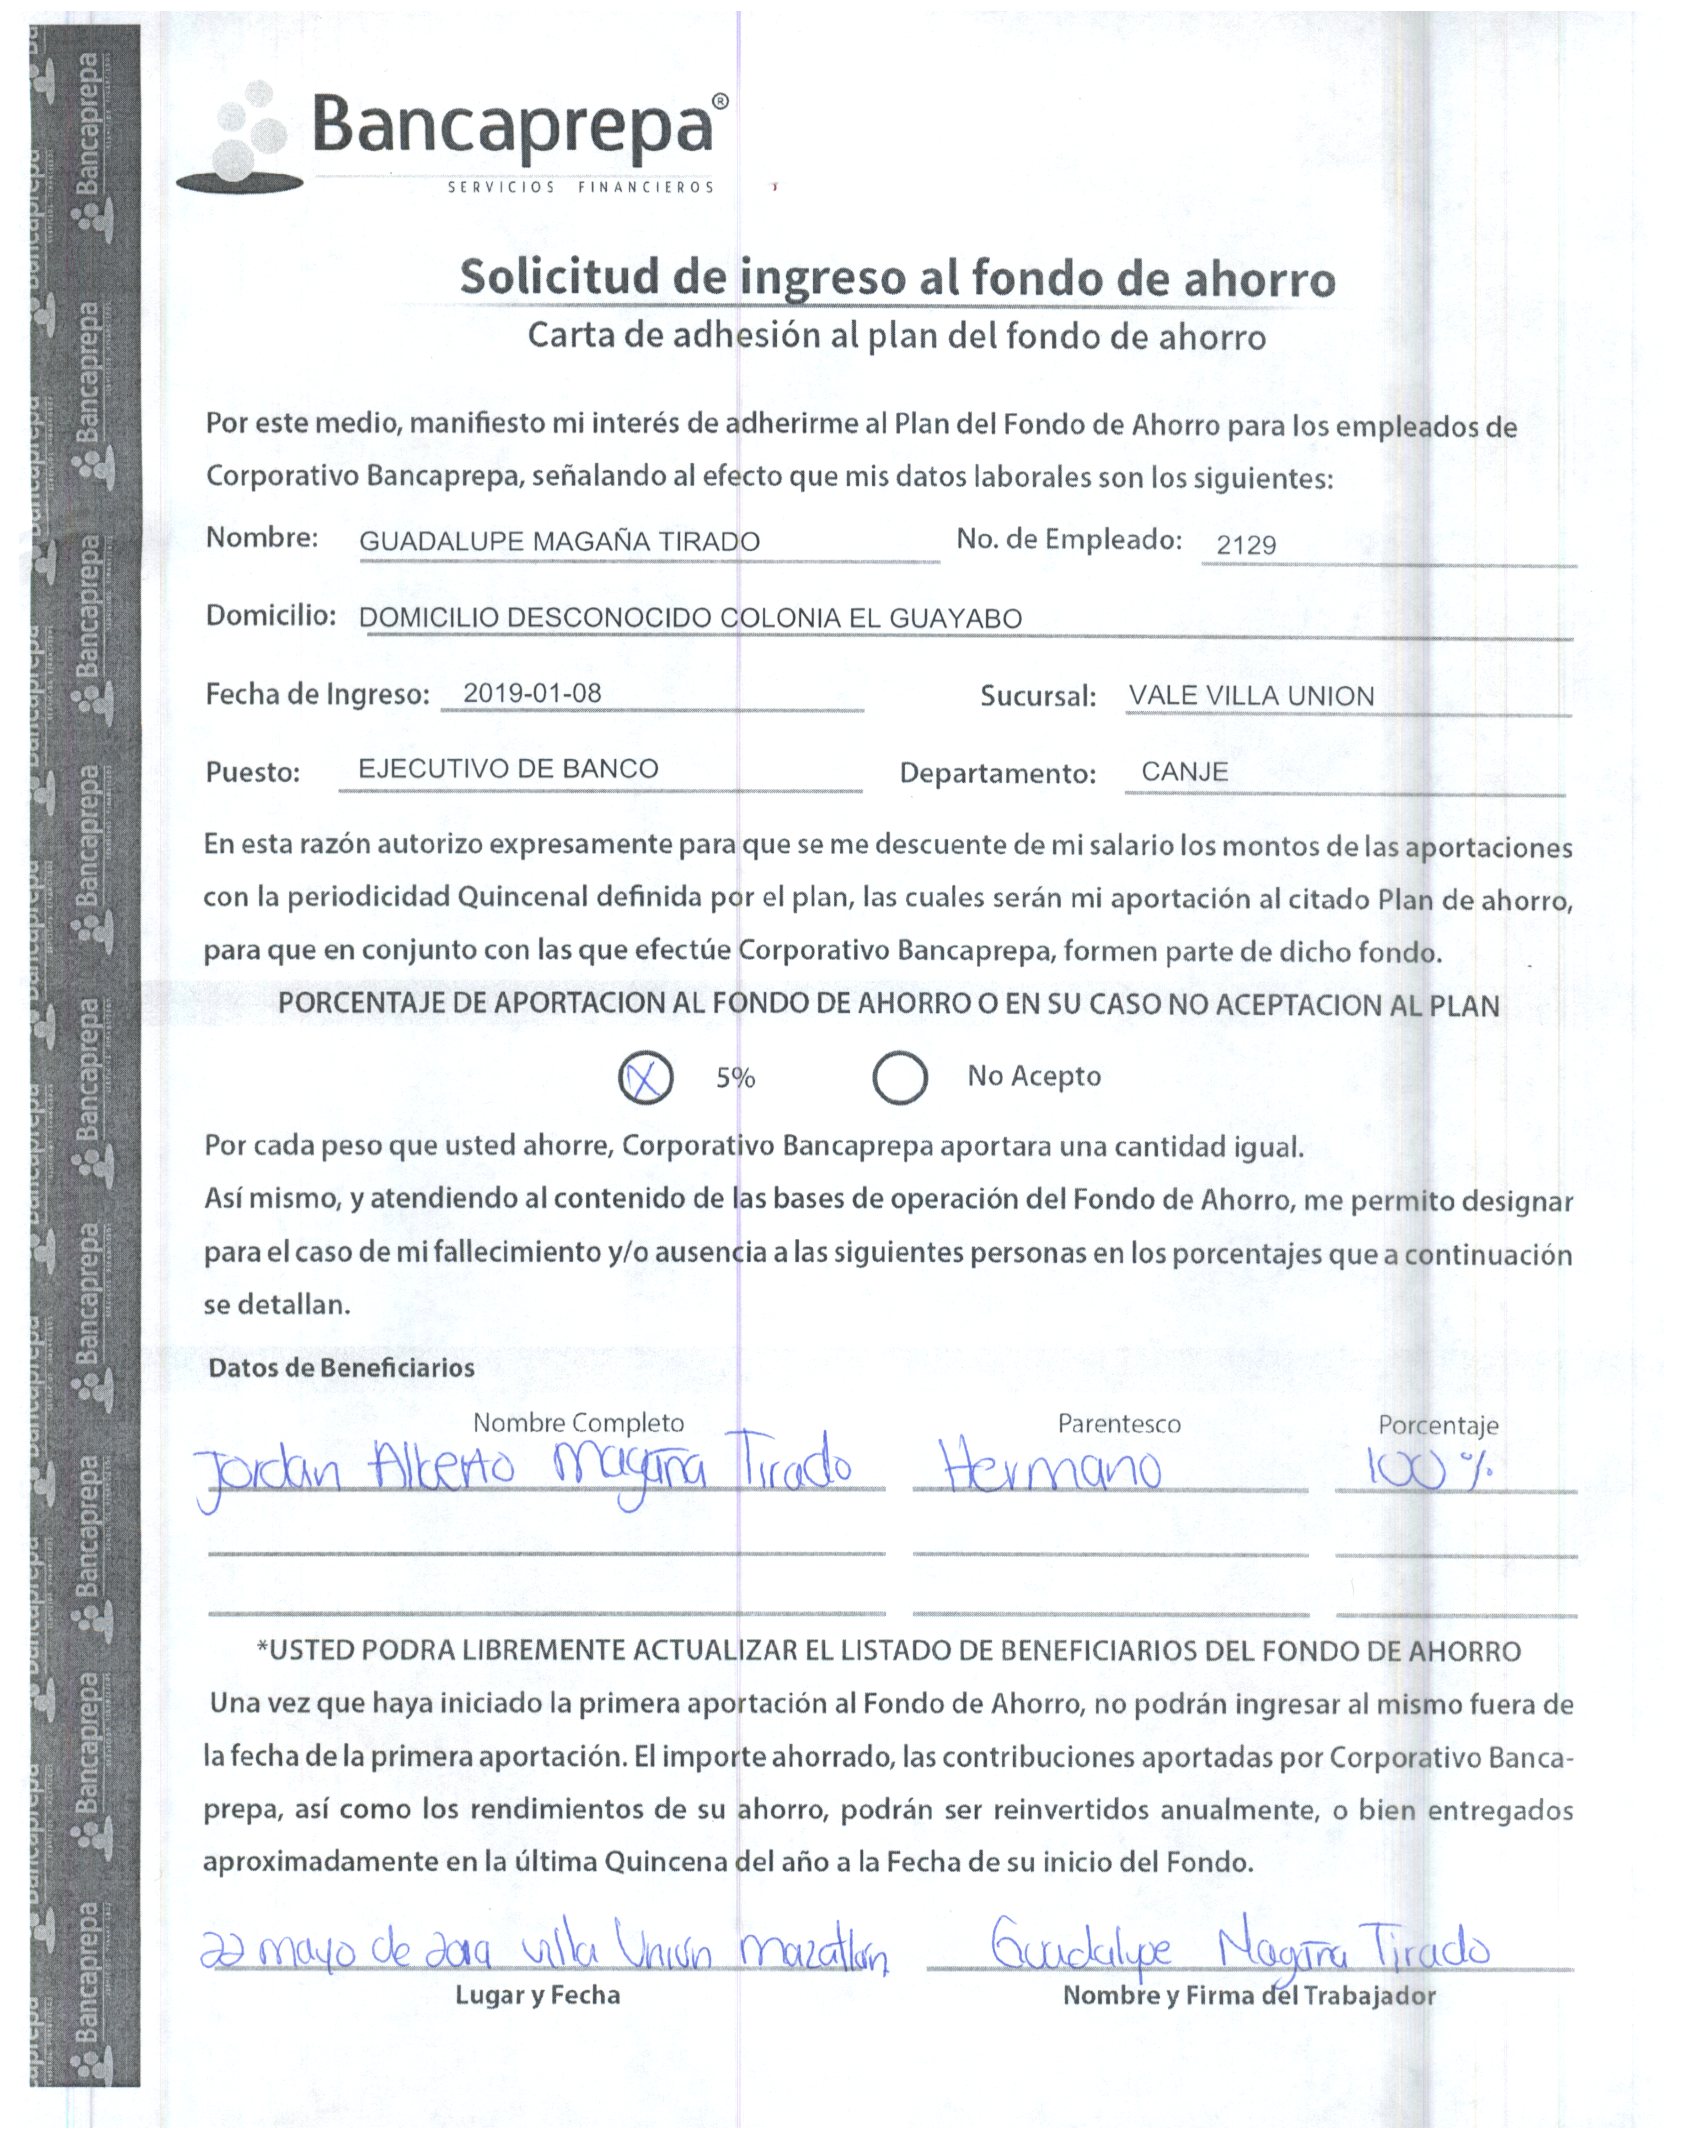 Bancaprepa®
SERVICIOS FINANCIEROS
Solicitud de ingreso al fondo de ahorro
Carta de adhesión al plan del fondo de ahorro
Por este medio, manifiesto mi interés de adherirme al Plan del Fondo de Ahorro para los empleados de
Corporativo Bancaprepa, señalando al efecto que mis datos laborales son los siguientes:
Nombre: GUADALUPE MAGAÑA TIRADO No. de Empleado: 2129
Domicilio: DOMICILIO DESCONOCIDO COLONIA EL GUAYABO
Fecha de Ingreso: 2019-01-08 Sucursal: VALE VILLA UNION
Puesto: EJECUTIVO DE BANCO Departamento: CANJE
En esta razón autorizo expresamente para que se me descuente de mi salario los montos de las aportaciones
con la periodicidad Quincenal definida por el plan, las cuales serán mi aportación al citado Plan de ahorro,
para que en conjunto con las que efectúe Corporativo Bancaprepa, formen parte de dicho fondo.
PORCENTAJE DE APORTACION AL FONDO DE AHORRO O EN SU CASO NO ACEPTACION AL PLAN
X 5% No Acepto
Por cada peso que usted ahorre, Corporativo Bancaprepa aportara una cantidad igual.
Así mismo, y atendiendo al contenido de las bases de operación del Fondo de Ahorro, me permito designar
para el caso de mi fallecimiento y/o ausencia a las siguientes personas en los porcentajes que a continuación
se detallan.
Datos de Beneficiarios
Nombre Completo Parentesco Porcentaje
Jordan Alberto Magaña Tirado Hermano 100 %
*USTED PODRA LIBREMENTE ACTUALIZAR EL LISTADO DE BENEFICIARIOS DEL FONDO DE AHORRO
Una vez que haya iniciado la primera aportación al Fondo de Ahorro, no podrán ingresar al mismo fuera de
la fecha de la primera aportación. El importe ahorrado, las contribuciones aportadas por Corporativo Banca-
prepa, así como los rendimientos de su ahorro, podrán ser reinvertidos anualmente, o bien entregados
aproximadamente en la última Quincena del año a la Fecha de su inicio del Fondo.
22 mayo de 2019 villa Unión Mazatlán Guadalupe Magaña Tirado
Lugar y Fecha Nombre y Firma del Trabajador
Bancaprepa
Bancaprepa
Bancaprepa
Bancaprepa
Bancaprepa
Bancaprepa
Bancaprepa
Bancaprepa
Bancaprepa